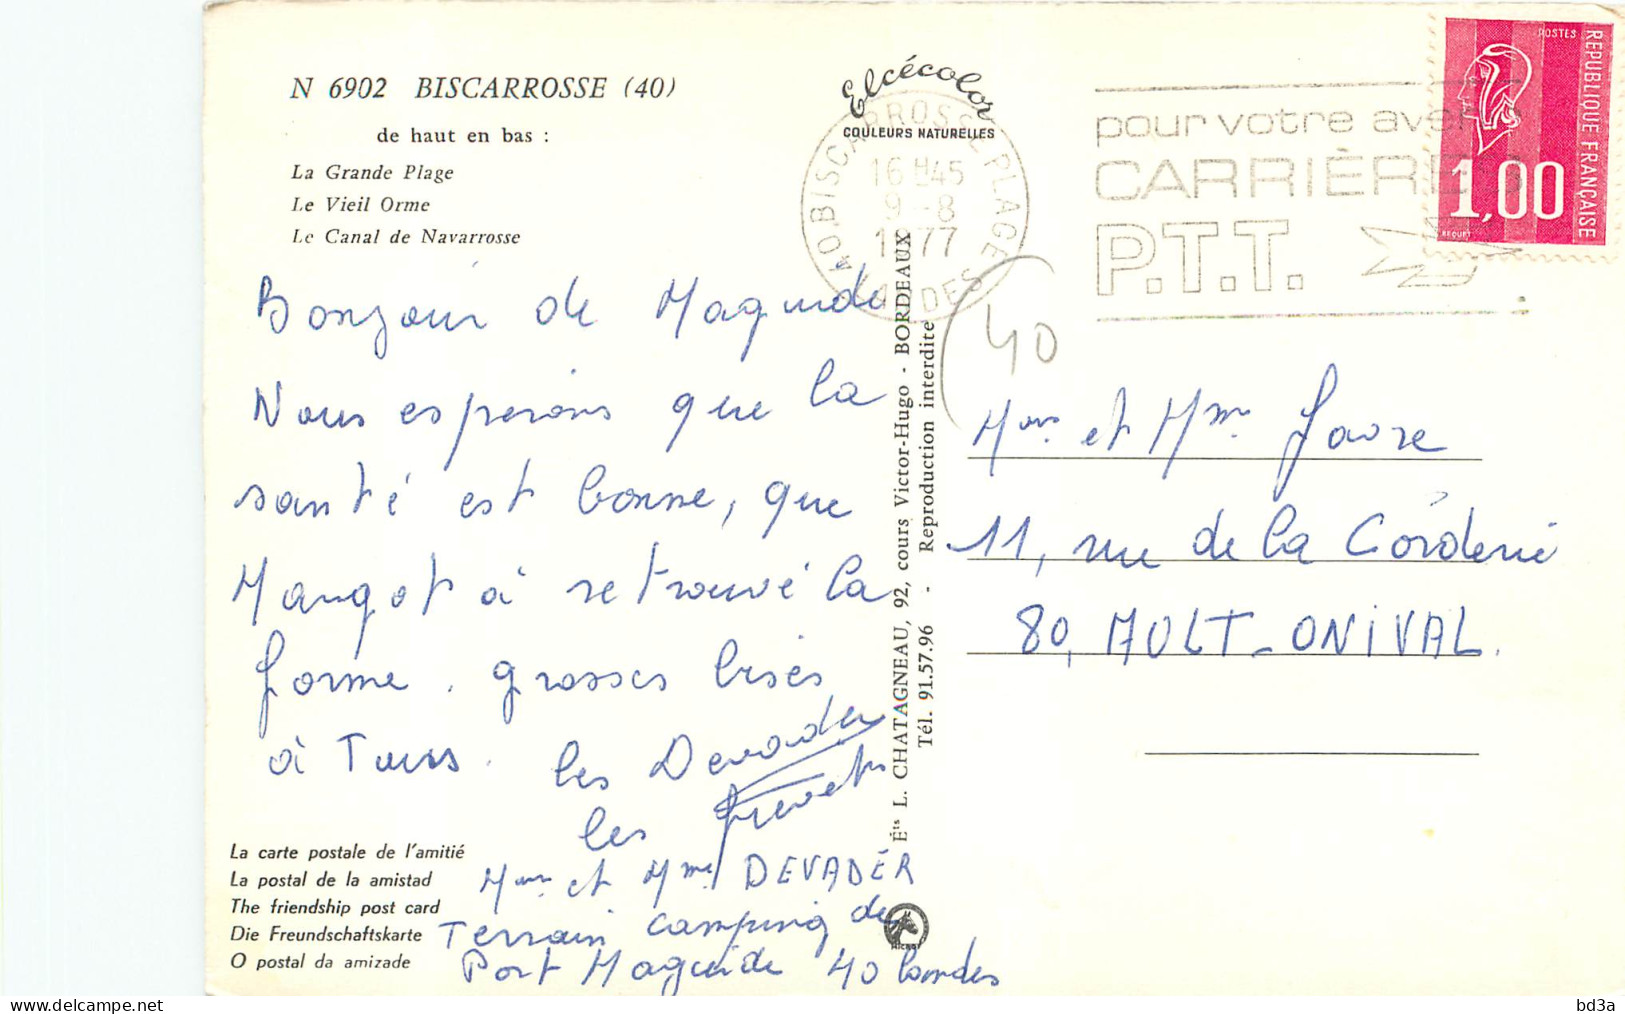 N 6902 BISCARROSSE (40)
de haut en bas :
La Grande Plage
Le Vieil Orme
Le Canal de Navarrosse
Bonjour de Maguide
Nous esperons que la
santé est bonne, que
Margot à retrouvé la
forme. grosses bises
à Tous. les Devader
les Prevets
Mr et Mme DEVADER
Terrain camping de
Port Maguide 40 landes
La carte postale de l'amitié
La postal de la amistad
The friendship post card
Die Freundschaftskarte
O postal da amizade
Elcécolor
COULEURS NATURELLES
40.BISCARROSSE PLAGE
16 H45
9 -8
1977
LANDES
Éts L. CHATAGNEAU, 92, cours Victor-Hugo - BORDEAUX
Tél. 91.57.96 - Reproduction interdite
pour votre aven
CARRIÈRE
P.T.T.
POSTES
REPUBLIQUE FRANÇAISE
1,00
BEQUET
40
Mr et Mme Favre
11, rue de la Corderie
80, AULT-ONIVAL.
delcampe.net
bd3a